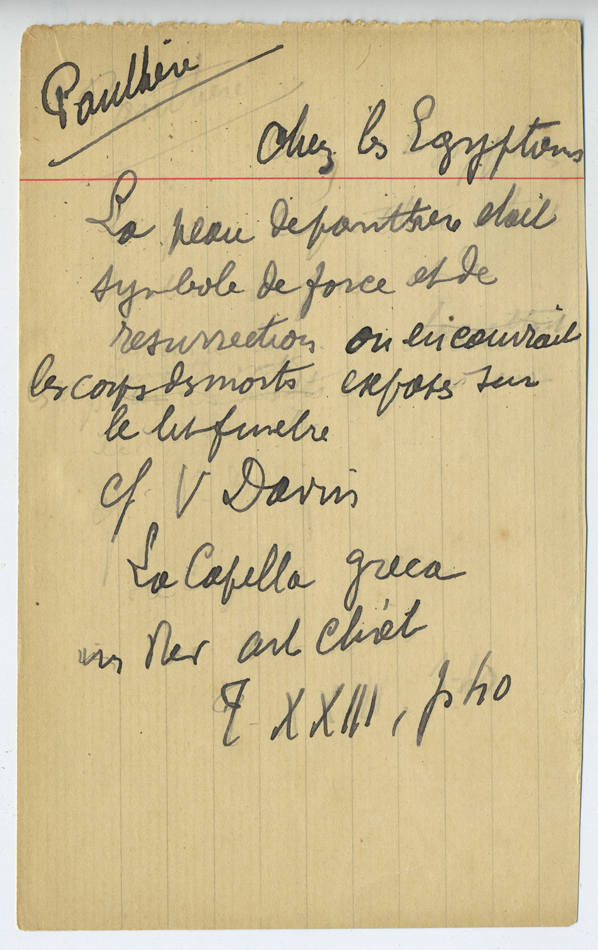 Panthère
Chez les Egyptiens
La peau de panthère était
symbole de force et de
resurrection on en couvrait
les corps des morts exposés sur
le lit funebre
cf V Davin
La Capella greca
in Rev art chrét
T XXIII, p 40